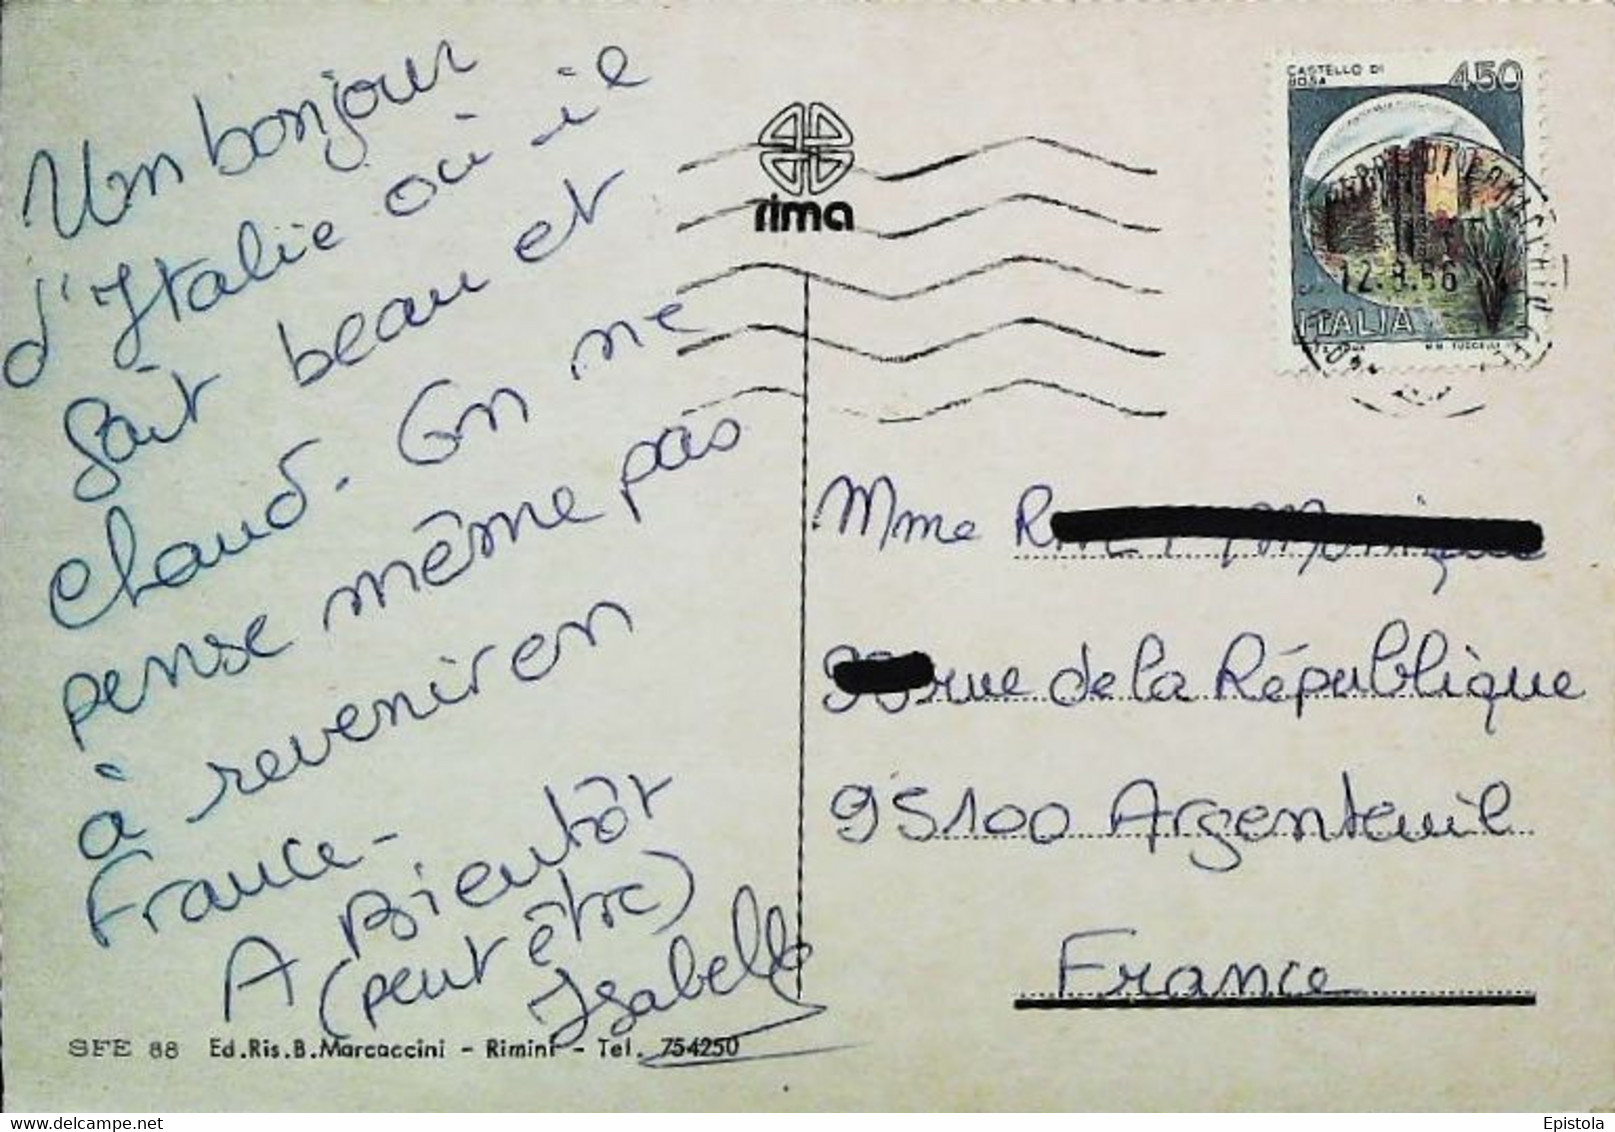 Un bonjour
d'Italie où il
fait beau et
chaud. On ne
pense même pas
à revenir en
France -
A Bientôt
(peut être)
Isabelle
SFE 88 Ed.Ris.B.Marcaccini - Rimini - Tel. 754250
rima
CASTELLO DI
BOSA
450
ITALIA
12.8.86
Mme
rue de la République
95100 Argenteuil
France
Epistola